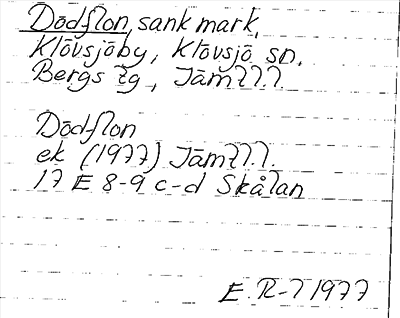 Dödflon, sank mark,
Klövsjöby, Klövsjö sn.
Bergs tg, Jämtl.l.
Dödflon
ek (1977) Jämtl.l.
17 E 8-9 c-d Skålan
E. R-l 1977